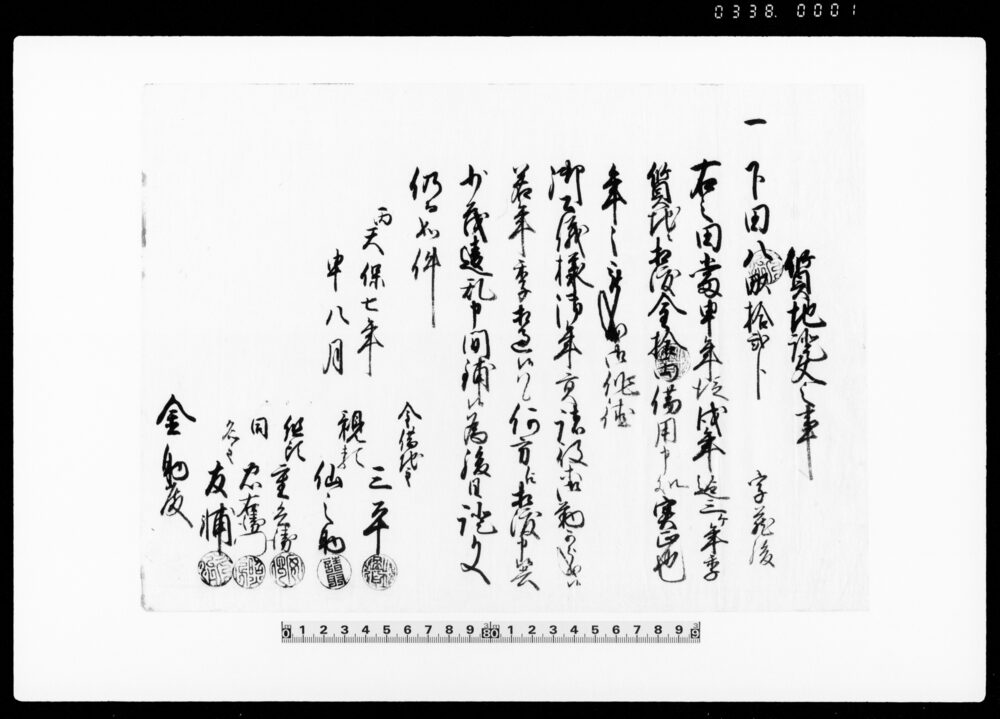 0338. 0001
質地証文之事
一 下田八畝拾弐卜 字蔵後
右之田当申年ゟ戌年迄三ヶ年季
質地ニ相渡金拾両借用申処実正也
年々
御公儀様御年貢諸役御勤可被成候
若年季相過候ハヽ何方江相渡申共
少茂違乱申間鋪候為後日証文
仍而如件
天保七年
丙申八月
金借地主
三平
親類
仙之助
組頭
重兵衛
同
忠右衛門
名主
友浦
金助殿
0 1 2 3 4 5 6 7 8 9 0 1 2 3 4 5 6 7 8 9